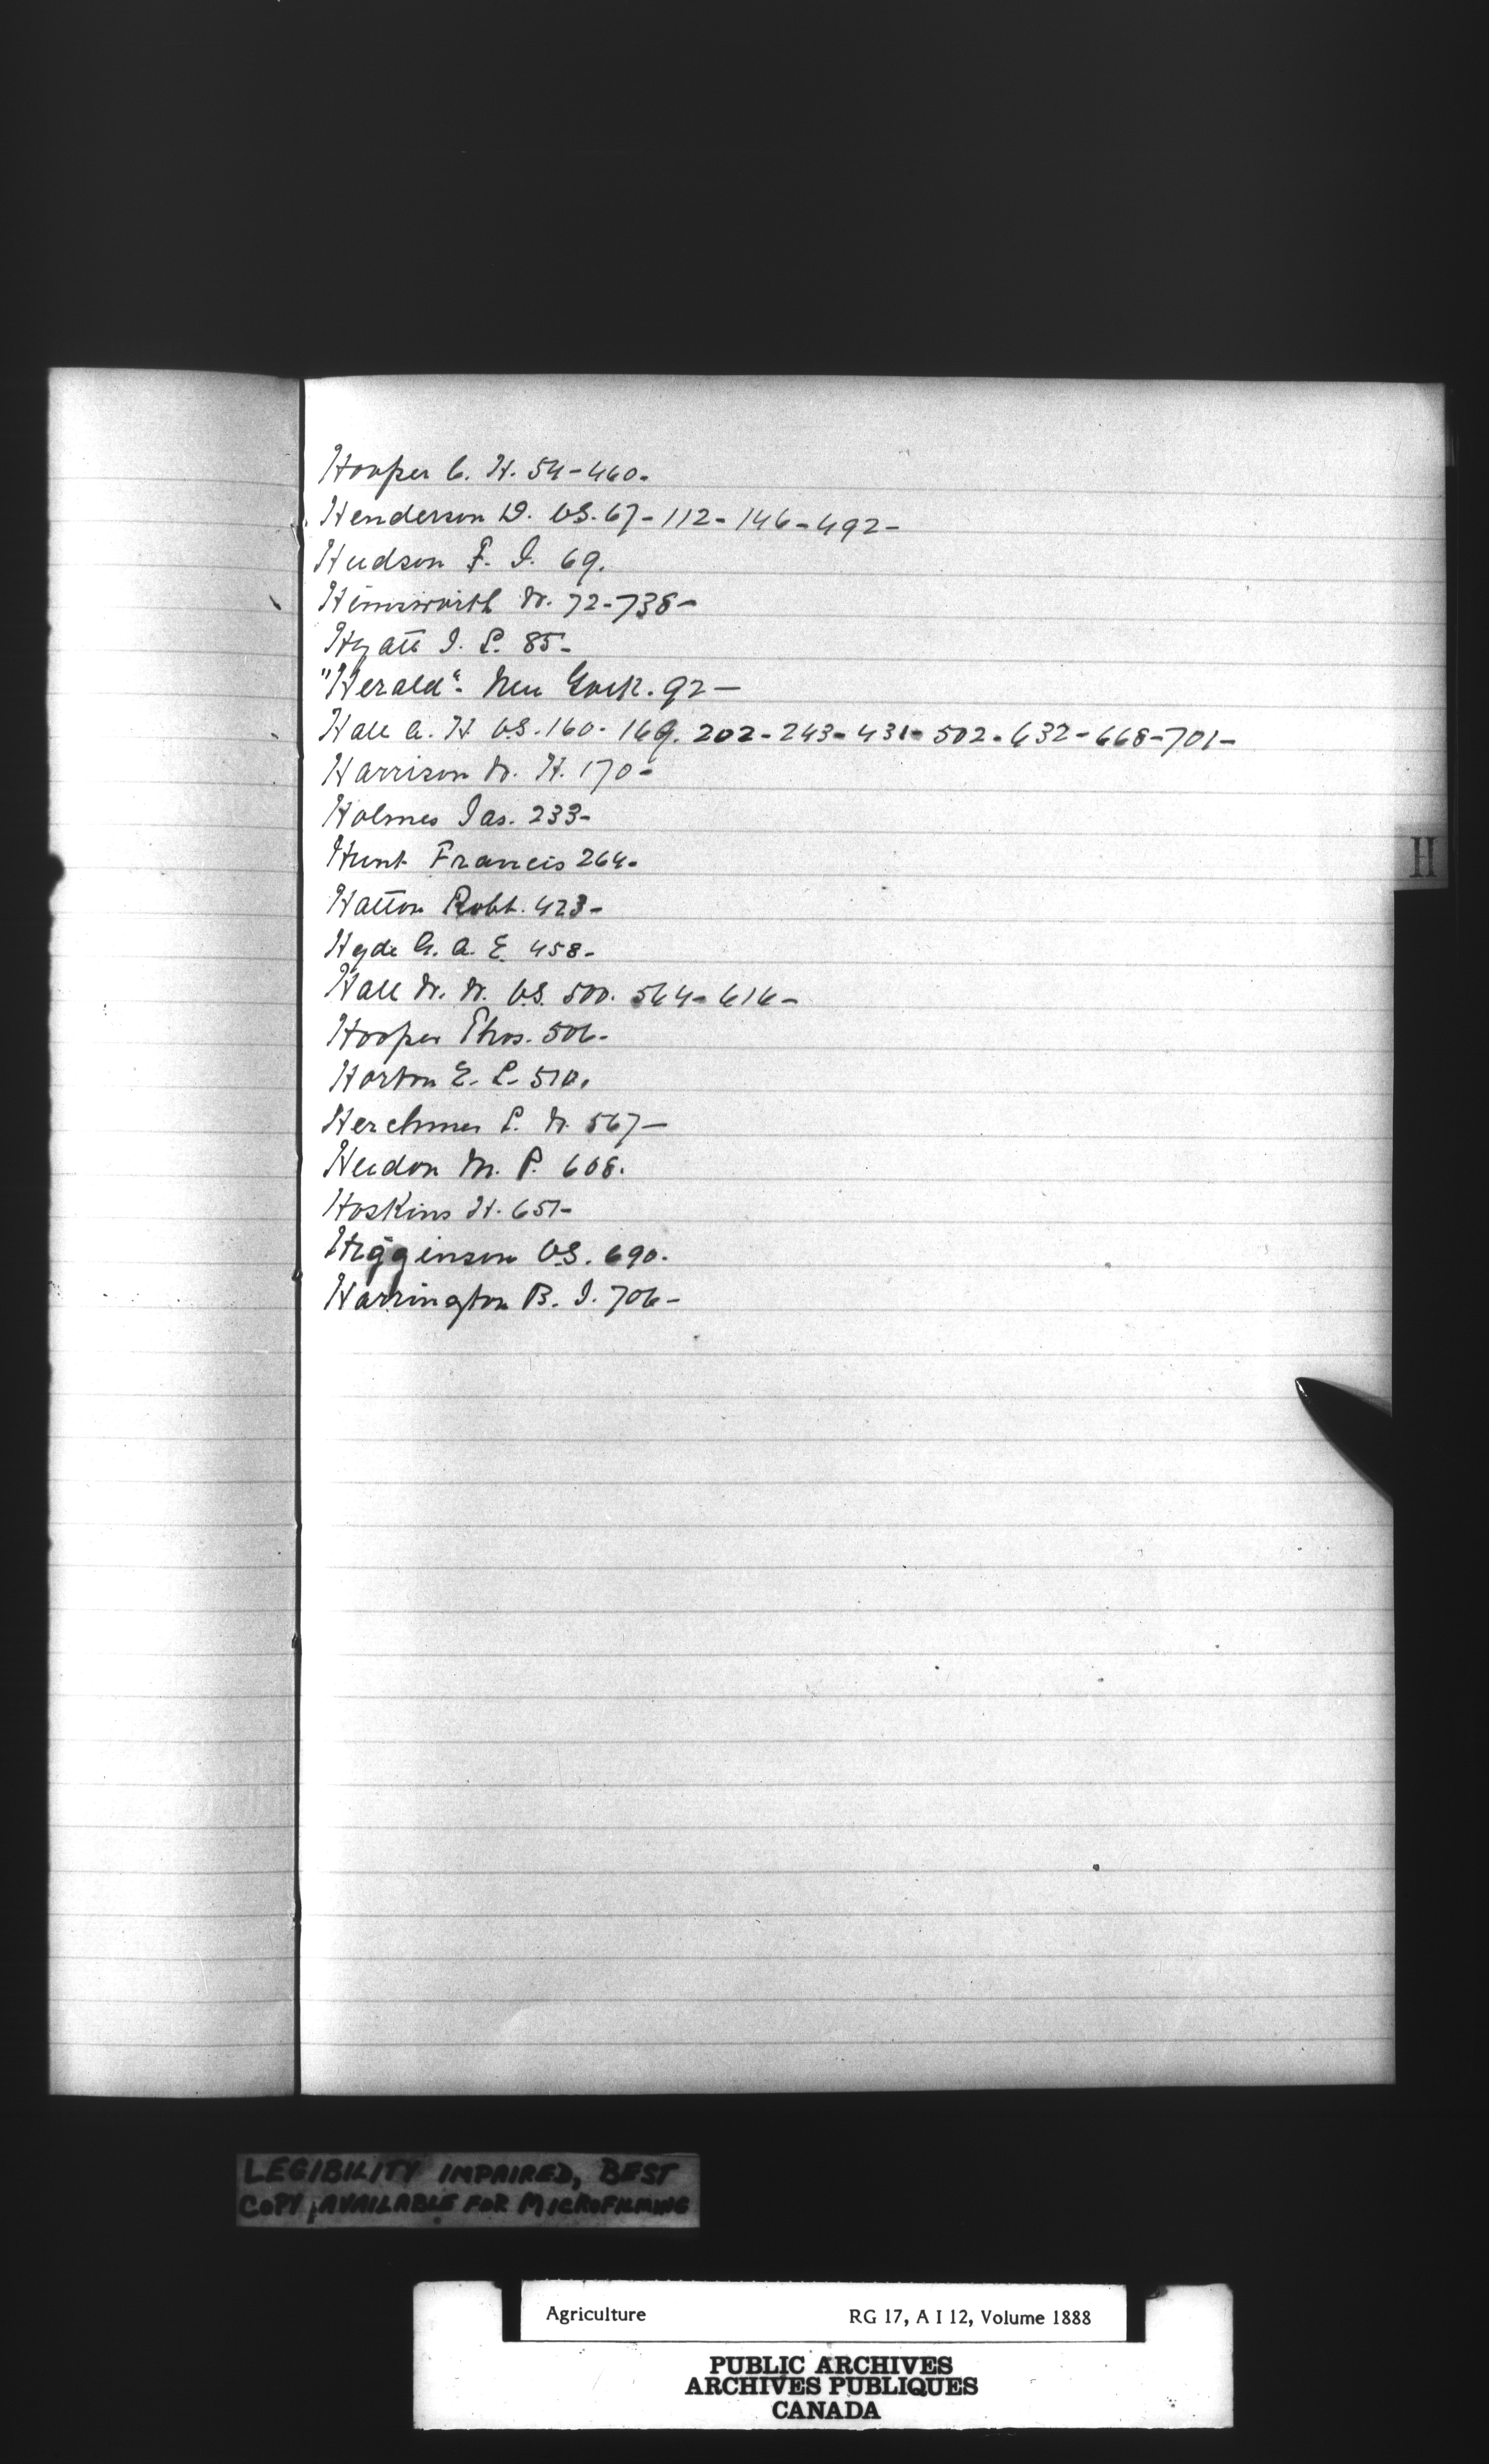 Hooper C. H. 54-460-
Henderson D. V.S. 67-112-146-492-
Hudson F. J. 69.
Himsworth W. 72-738-
Hyatt J. L. 85-
"Herald" New York. 92-
Hall A. H V.S. 160-169. 202-243-431-502-632-668-701-
Harrison W. H. 170-
Holmes Jas. 233-
Hunt Francis 264-
Hatton Robt. 423-
Hyde G. A. E. 458-
Hall W. W. V.S. 500. 564-616-
Hooper Thos. 506-
Horton E. L. 510.
Herchmer L. W. 567-
Hudon M. P. 608.
Hoskins H. 651-
Higginson V.S. 690.
Harrington B. J. 706-
H
LEGIBILITY IMPAIRED, BEST
COPY AVAILABLE FOR MICROFILMING
Agriculture RG 17, A I 12, Volume 1888
PUBLIC ARCHIVES
ARCHIVES PUBLIQUES
CANADA